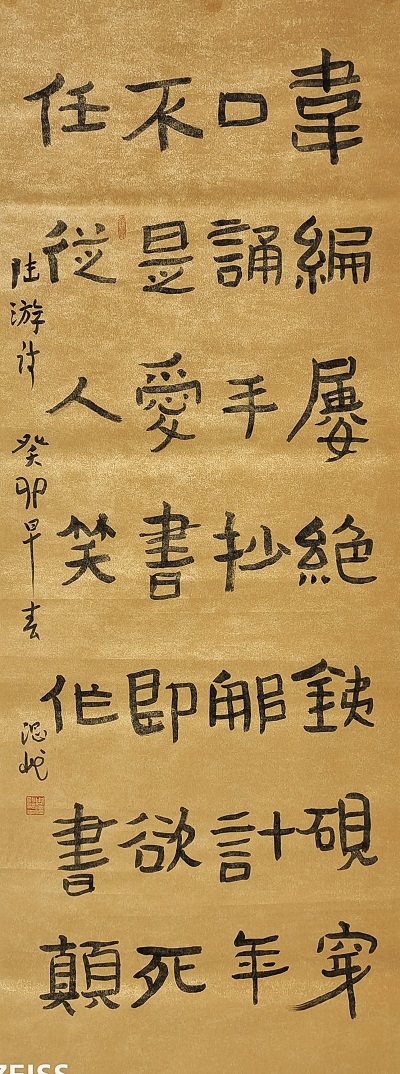 韋編屢絶銕硯穿
口誦手抄那計年
不是愛書即欲死
任從人笑作書顛
陆游诗 癸卯早春
ZEISS